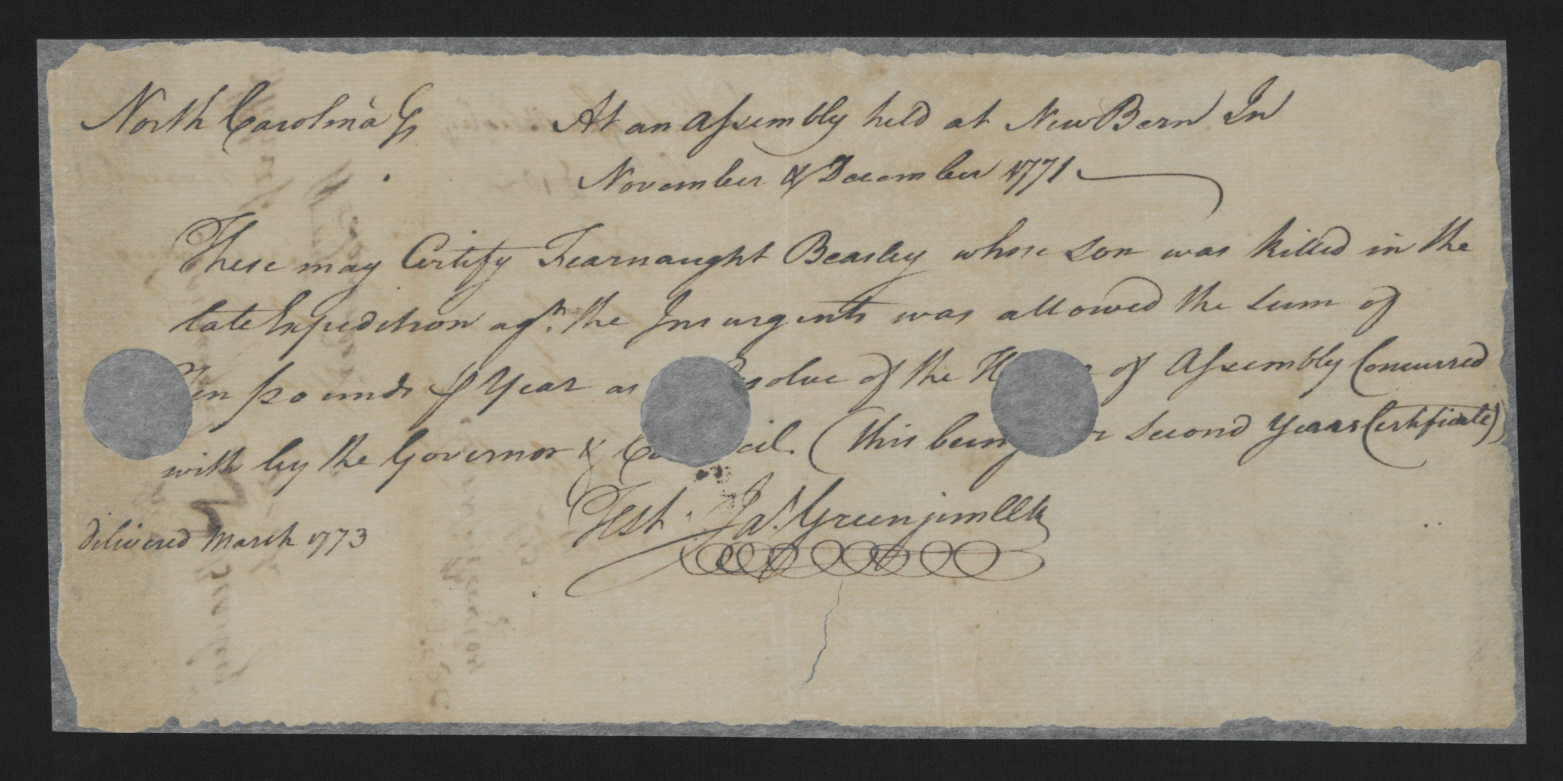 North Carolina Ss At an Assembly held at New Bern In
November & December 1771
These may Certify Fearnaught Beasley whose Son was killed in the
late Expedition agt. the Insurgents was allowed the Sum of
Ten pounds ⅌ Year as solve of the H of Assembly Concurred
with by the Governor & Co cil. (this being Second Years Certificate)
Test. Jas. Green junr Clk
delivered March 1773